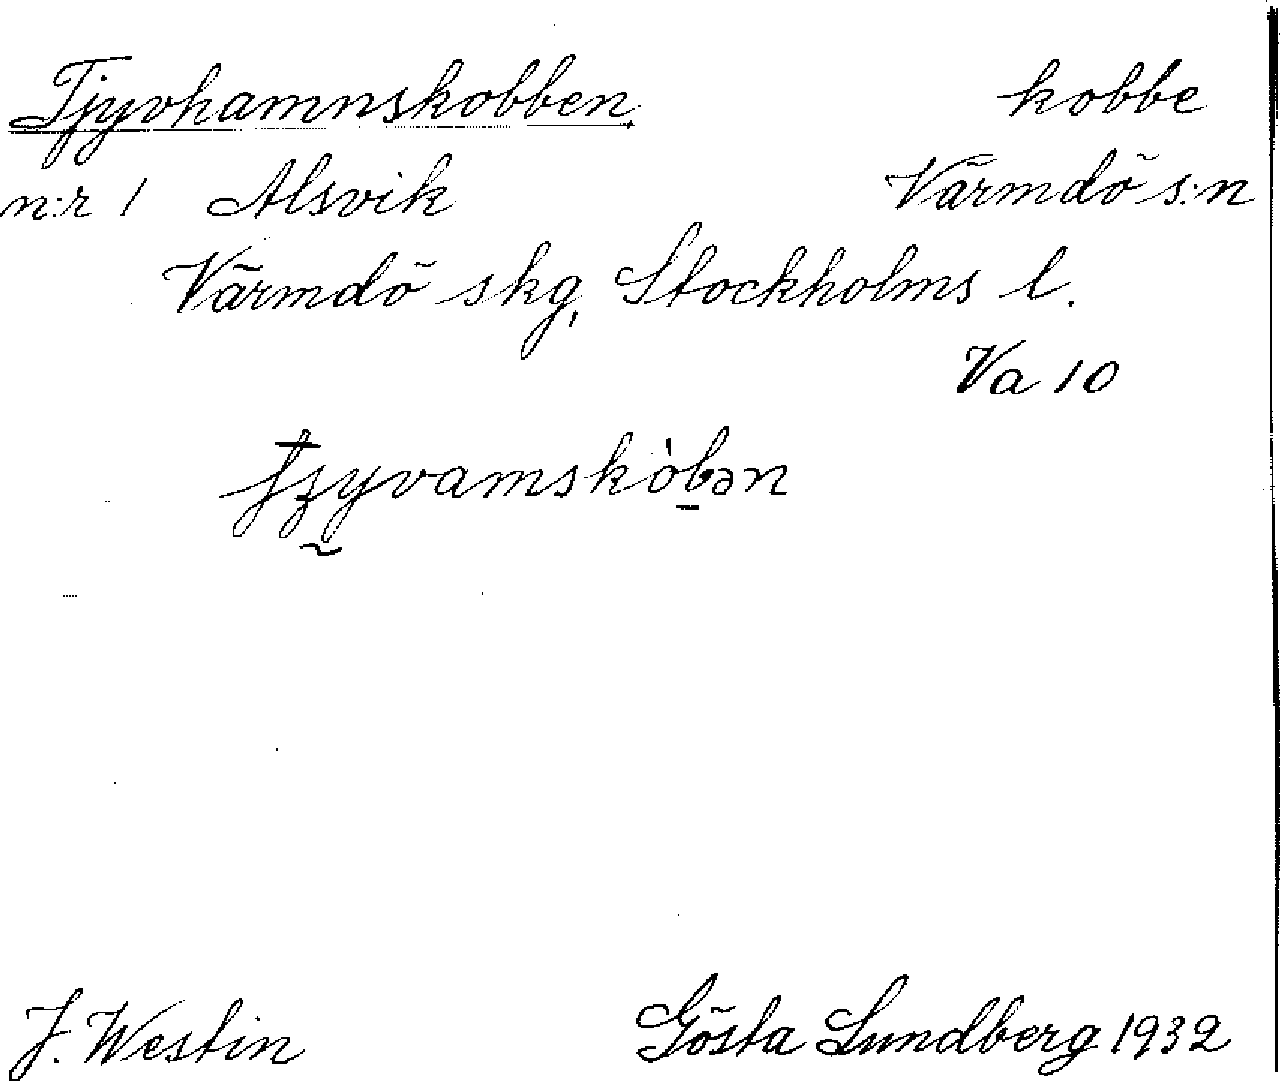 Tjyvhamnskobben kobbe
n:r 1 Alsvik Värmdö s:n
Värmdö skg, Stockholms l.
Va 10
J. Westin Gösta Lundberg 1932